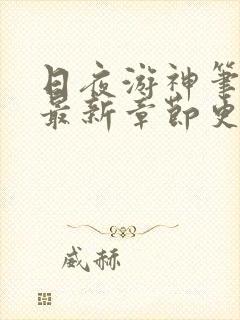 日夜游神笔
最新章节史
威赫